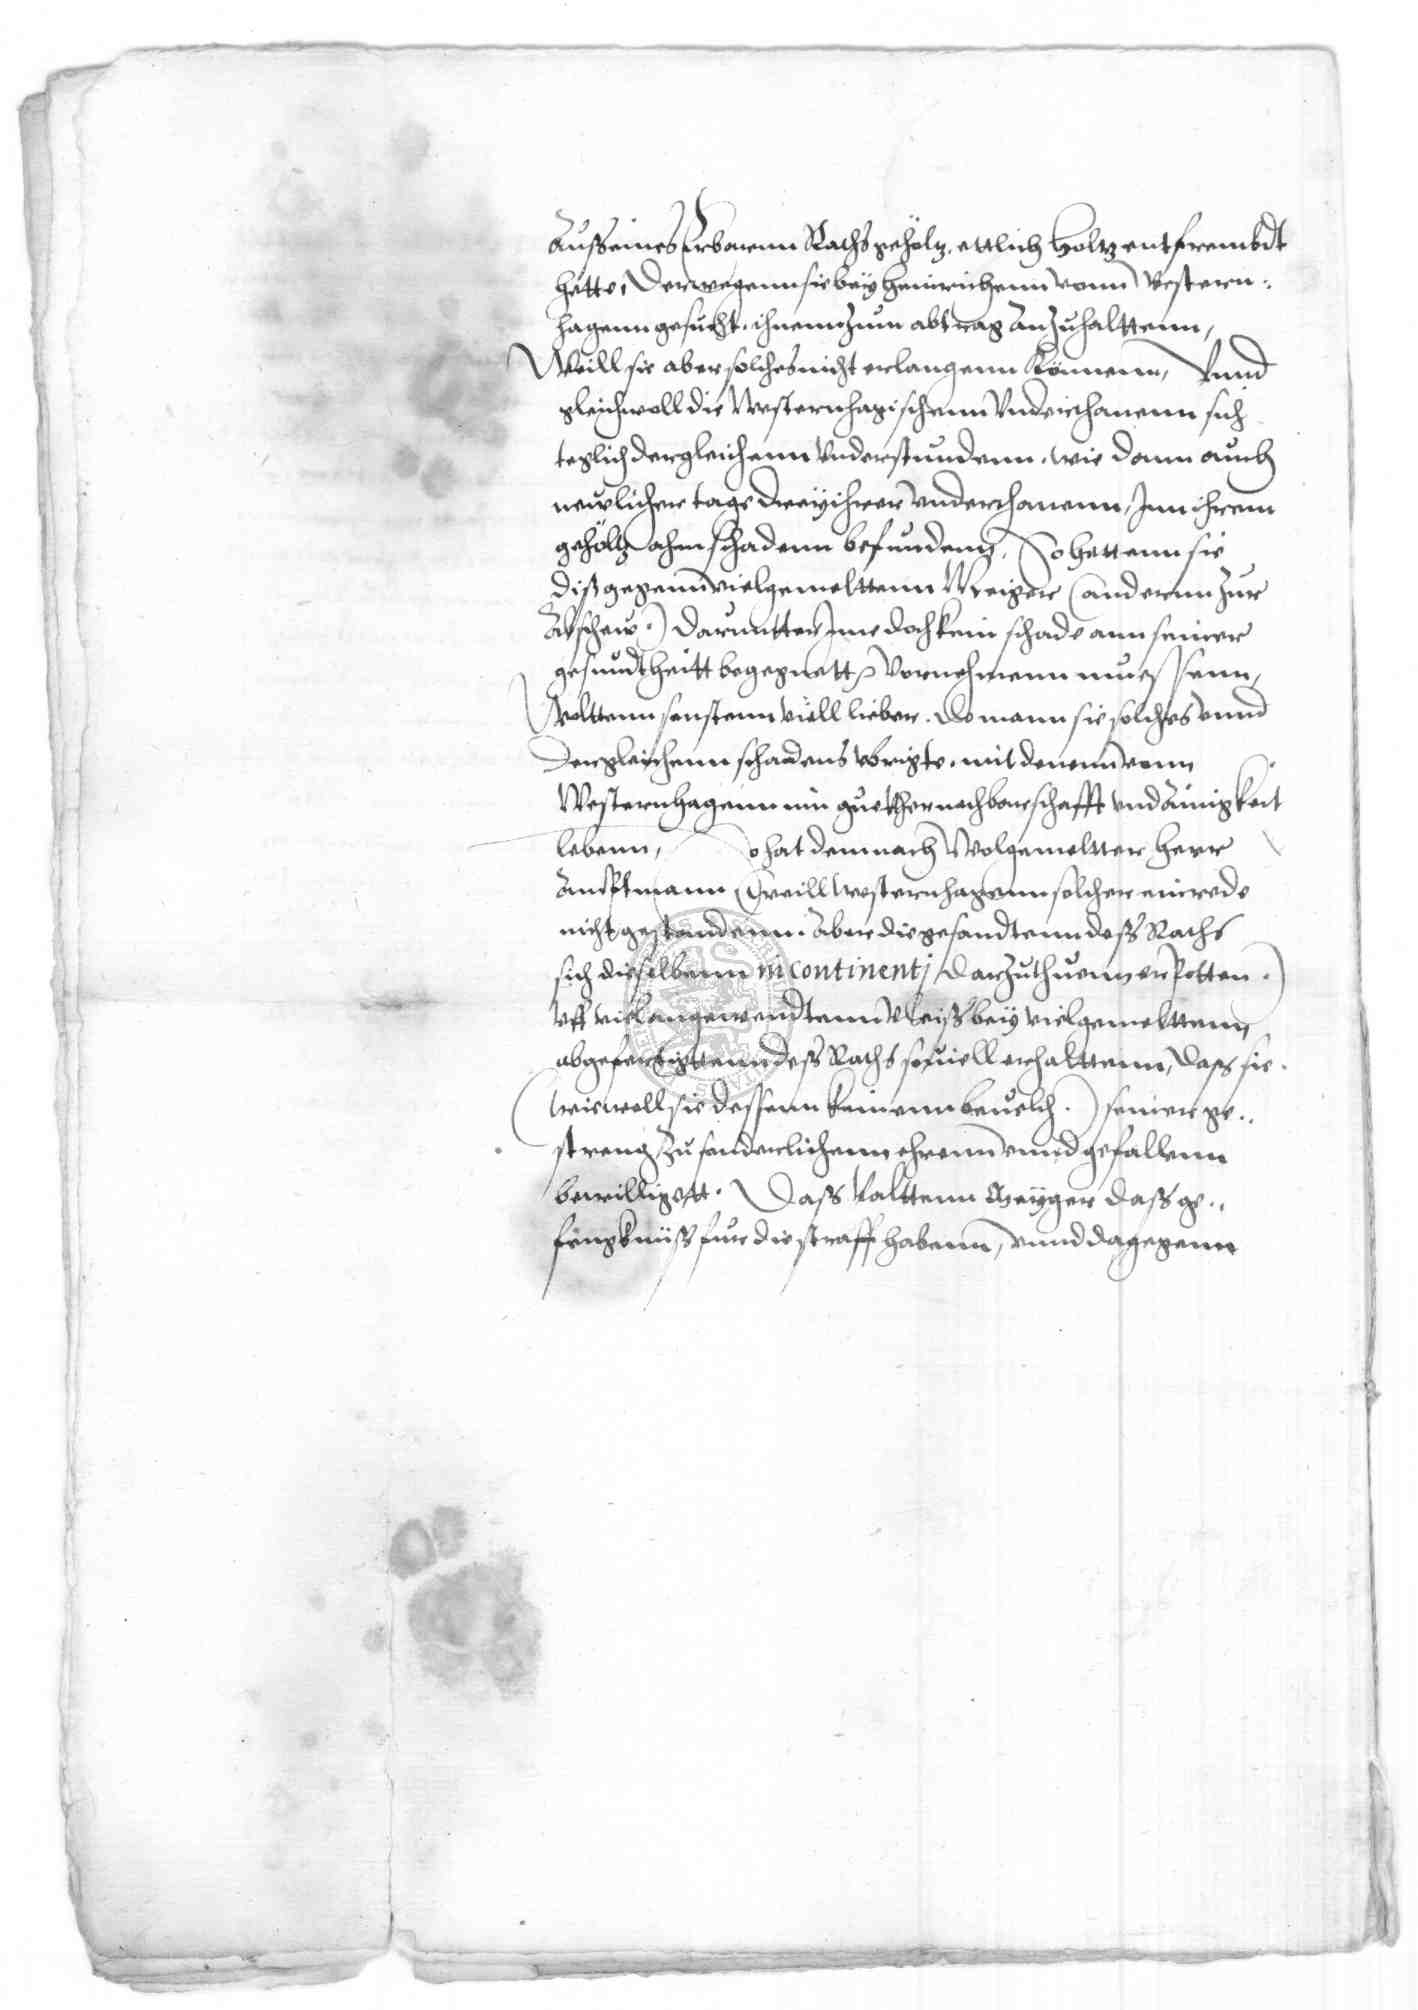 Auß eines Erbarenn Raths gehöltz, ettlich holtz entfrembdt
hette, Derwegenn sie bey Heinrichenn vonn Western:
hagenn gesucht, ihnenn zum abtrag anzuhalttenn,
Weill sie aber solches nicht erlangenn könnenn, Vnnd
gleichwoll die Westernhagischenn Vnderthanenn sich
teglich dergleichenn vnderstundenn, wie dann auch
newlicher tage drey ihrer vnderthanenn, Inn ihrem
gehöltz ahm schadenn befundenn, So hettenn sie
diß gegenn vielgemelttenn Meiger (anderenn zur
Abschew.) daruntter Ime doch kein schade ann seiner
gesundtheitt begegnett, vornehmenn muessenn,
Wolttenn sonstenn viell lieber, do mann sie solches vnnd
dergleichenn schadens vbrigte, mit denenn vonn
Westernhagenn inn guether nachbarschafft vnd Ainigkeit
lebenn, So hat demnach Wolgemeltter Herr
Amptmann (weill Westernhagenn solcher einrede
nicht gestandenn. Aber die gesandtenn deß Raths
sich dieselbenn incontinentj darzuthuenn erpotten.)
Vff viel angewendtenn vleiß bey vielgemelttenn
abgefertigttenn deß Raths souiell erhalttenn, daß sie.
(wiewoll sie dessenn keinenn beuelch.) seiner ge..
streng zu sonderlichenn ehrenn vnnd gefallenn
bewilligett. Daß Valttenn Meyger daß ge..
fengknüß fur die straff habenn, vnnd dagegenn